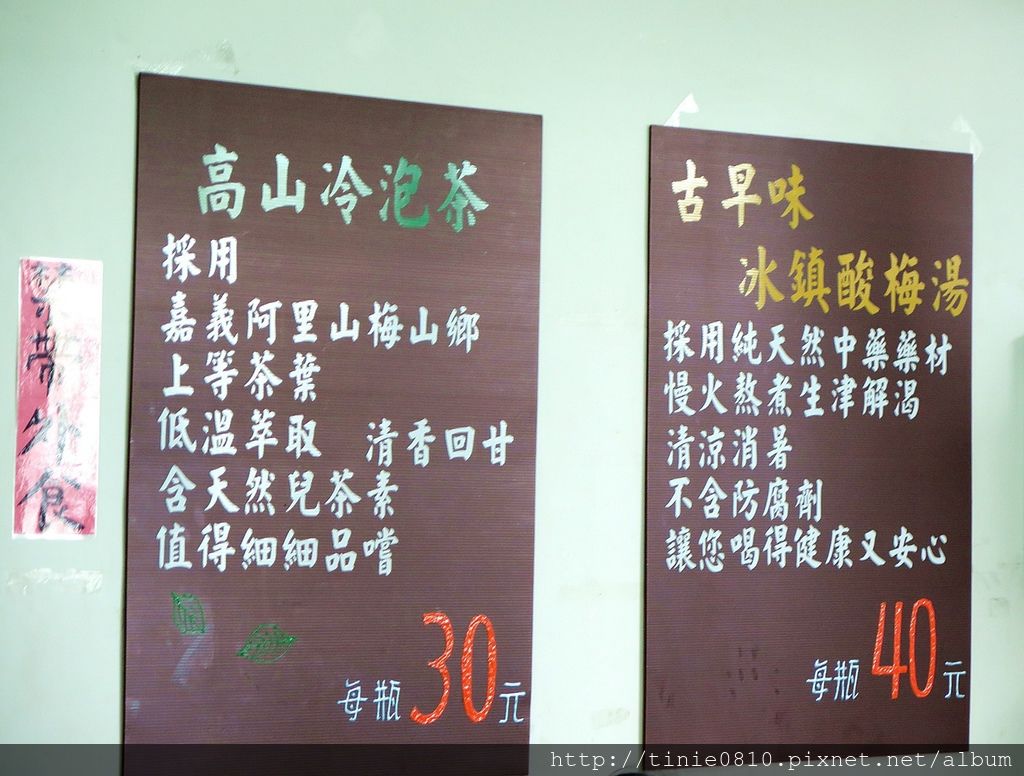 禁帶外食
高山冷泡茶
採用
嘉義阿里山梅山鄉
上等茶葉
低溫萃取 清香回甘
含天然兒茶素
值得細細品嚐
每瓶30元
古早味
冰鎮酸梅湯
採用純天然中藥藥材
慢火熬煮生津解渴
清涼消暑
不含防腐劑
讓您喝得健康又安心
每瓶40元
http://tinie0810.pixnet.net/album